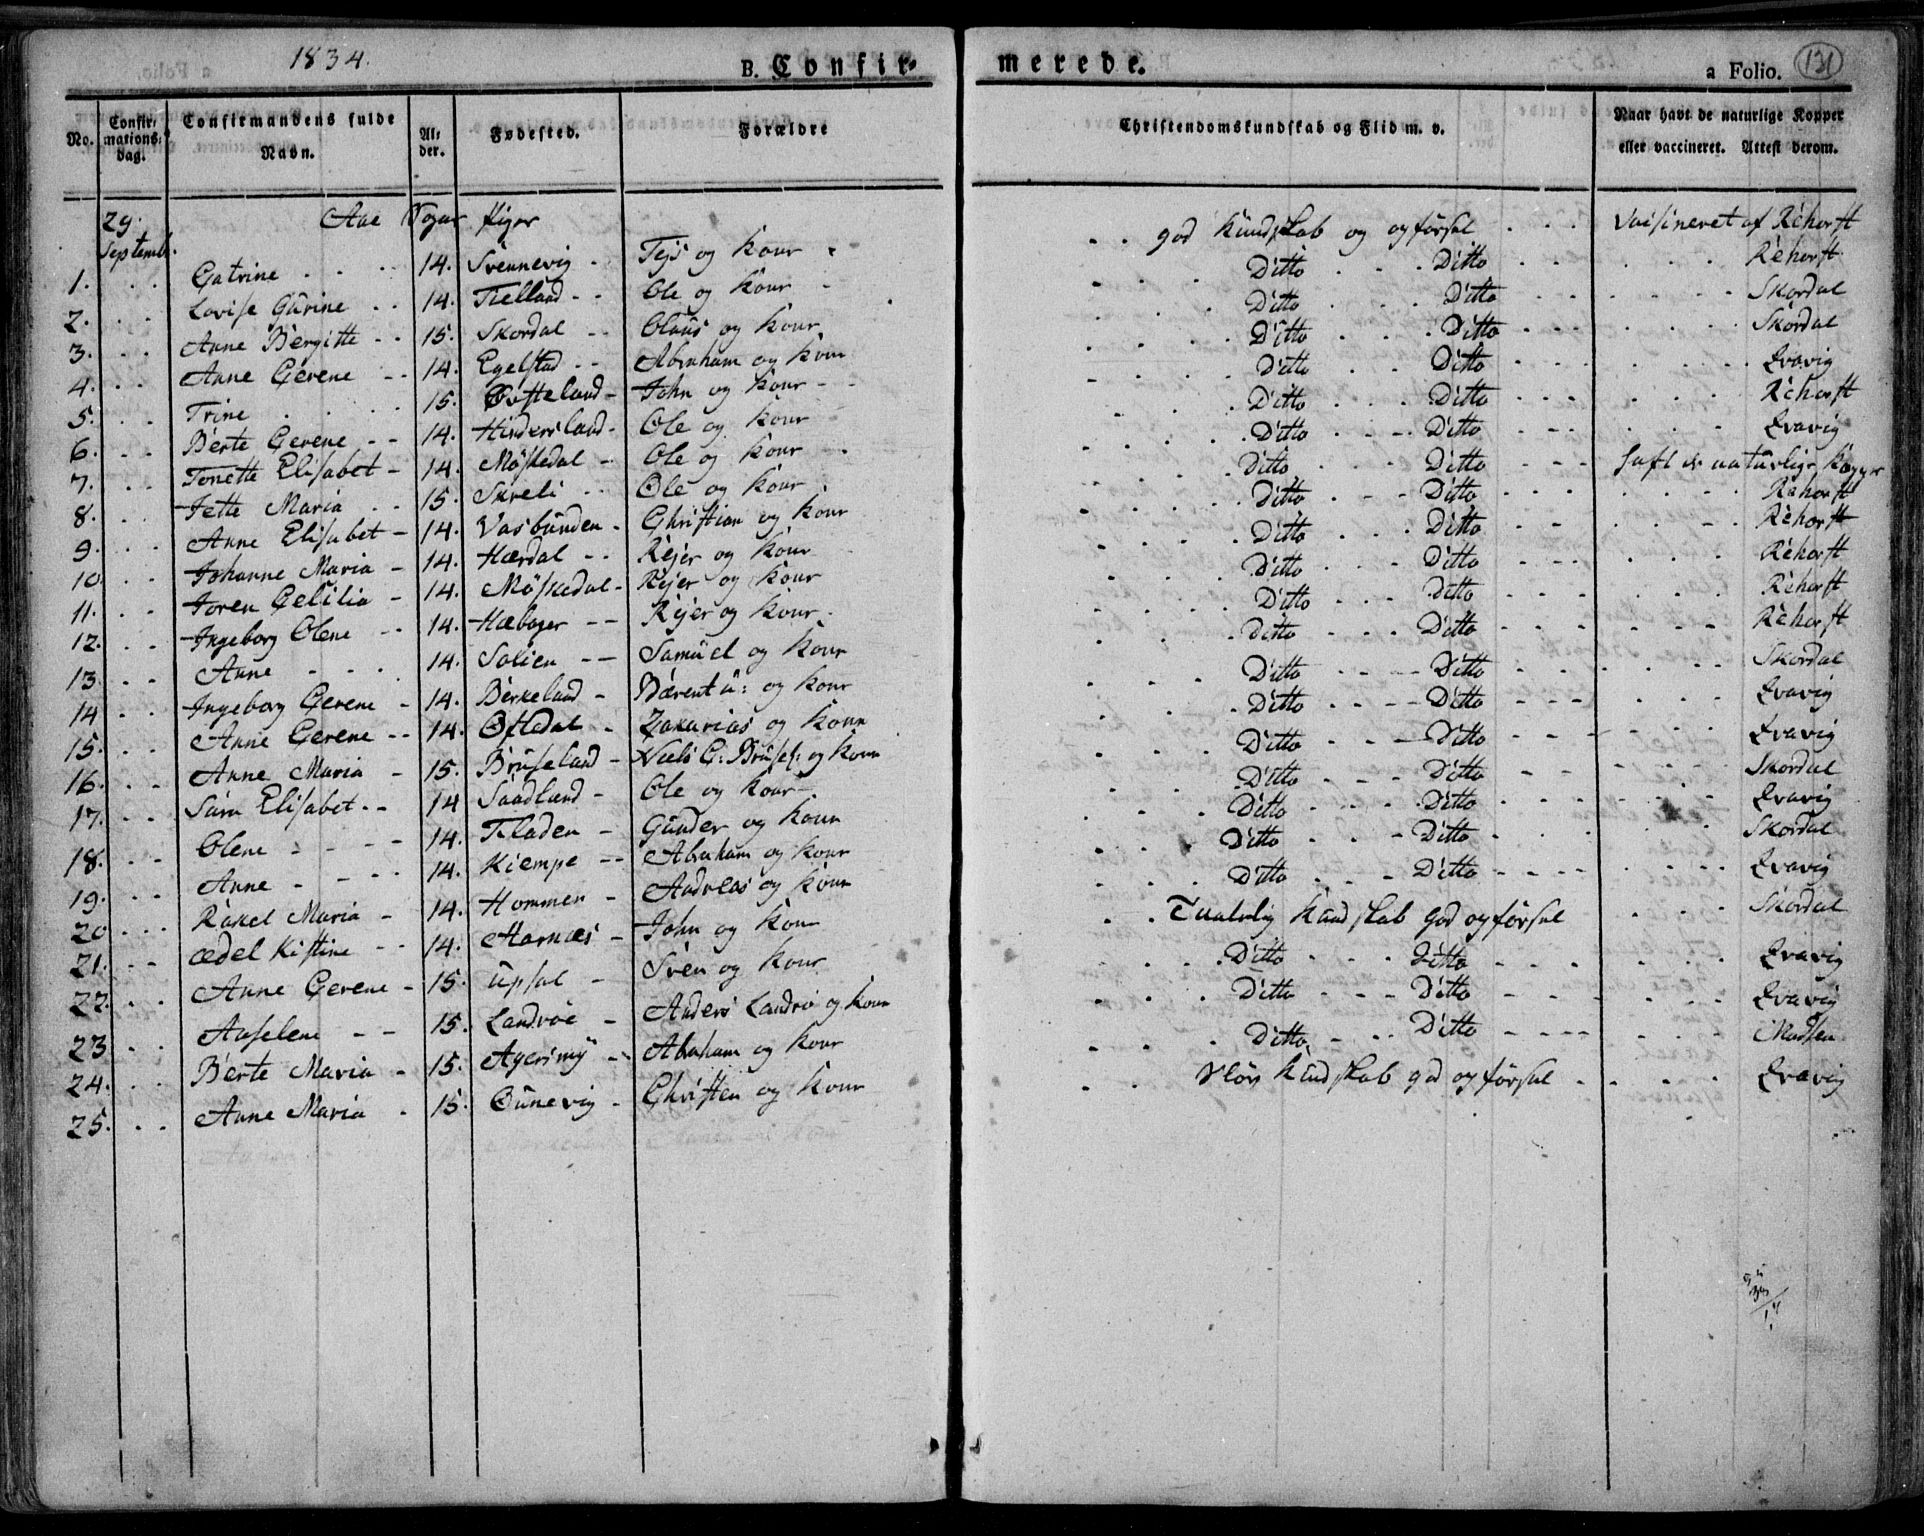 1834.
B. Confir-
merede.
a Folio. 131
No. Confir-mations-dag. Confirmandens fulde Navn. Al-der. Fødested. Forældre Christendomskundskab og Flid m. v. Naar havt de naturlige Kopper eller vaccineret. Attest derom.
29. Septemb. Aae Sogns Piger
1. Catrine 14. Svennevig Tejs og kone god kundskab og opførsel Vaisineret af Rehorst
2. Lovise Gurine 14. Tielland Ole og kone Ditto Ditto Rehorst
3. Anne Bergitte 15. Skordal Olaus og kone Ditto Ditto Skordal
4. Anne Gerene 14. Egelstad Abraham og kone Ditto Ditto Skordal
5. Trine 15. John og kone Ditto Ditto Qvavig
6. Berte Gerene 14. Hindersland Ole og kone Ditto Ditto Rehorst
7. Tonette Elisabet 14. Møskedal Ole og kone Ditto Ditto Qvavig
8. Jette Maria 15. Skreli Ole og kone Ditto Ditto haft de naturlige Kopper
9. Anne Elisabet 14. Vasbunden Christian og kone Ditto Ditto Rehorst
10. Johanne Maria 14. Hærdal Rejer og kone Ditto Ditto Rehorst
11. Joren Celilia 14. Møskedal Rejer og kone Ditto Ditto Rehorst
12. Ingeborg Olene 14. Hæbager Rejer og kone Ditto Ditto Rehorst
13. Anne 14. Solien Samuel og kone Ditto Ditto Rehorst
14 Ingeborg Gerene 14. Birkeland Bærent u: og kone Ditto Ditto Skordal
15. Anne Gerene 14. Oftedal Zakarias og kone Ditto Ditto Qvavig
16. Anne Maria 15. Bruseland Niels C: Brusel: og kone Ditto Ditto Qvavig
17. Sara Elisabet 14 Saadland Ole og kone Ditto Ditto Skordal
18. Olene 14. Fladen Gunder og kone Ditto Ditto Qvavig
19. Anne 14. Kiempe Abraham og kone Ditto Ditto Skordal
20 Rakel Maria 14. Hommen Andreas og kone Ditto Ditto Qvavig
21. Ædel Kistine 14. Aarnæs John og kone Taalelig Kundskab god opførsel Skordal
22. Anne Gerene 15. Upsal Sven og kone Ditto Ditto Qvavig
23 Aaselene 15. Landrøe Anders Landrø og kone Ditto Ditto Qvavig
24. Berte Maria 15. Agersmÿ Abraham og kone Ditto Ditto Madsen
25. Anne Maria 15. Ounevig Christen og kone sløv kundskab god opførsel Qvavig